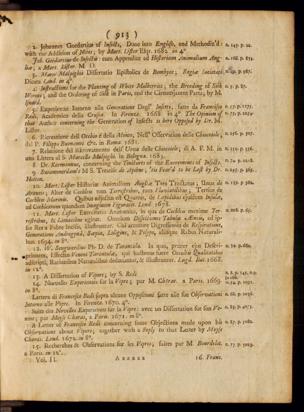 ( 913 )
2. Johannes Goedartius of Insects, Done into English, and Methodiz'd : n. 143. p. 22.
with the Addition of Notes; by Mart. Lister Esq; 1682. in 4°
Joh. Goedartius de Insectis: cum Appendice ad Historiam Animalium Ang- n. 168. p. 873.
liæ, a Mart. Lister. M. D.
3. Marci Malpighii Dissertatio Epistolica de Bombyce, Regiæ Societati
Dicata Lond. in 4°
4. Instructions for the Planting of White Mulberries; the Breeding of Silk n. 5. p. 87.
Worms; and the Ordering of Silk in Paris, and the Circumjacent Parts; by M.
Isnard.
5. Esperienze Intorno alla Generatione Degl' Insetti, fatte da Francisco
Redi, Academico della Crusca. In Firenze. 1668 in 4° The Opinion of
that Author concerning the Generation of Insects is here Opposed by Dr. M.
Lister.
6. Recreatione dell Occhio è della Mente, Nell' Osservation delle Chiociole,
del P. Filippo Buonanni &c. in Roma 1681.
7. Relatione del ritrovamento dell' Uova delle Chiociole; di A. F. M. in
una Lettera al S. Marcello Malpighi. In Bologna. 1683.
8. Dr. Garmannus, concerning the Vinculum of the Excrements of Insects.
9. Swammerdam's M S. Treatise de Apibus; 'tis Fear'd to be Lost by Dr.
Hotton.
10. Mart. Lister Historiæ Animalium Angliæ Tres Tractatus; Unus de
Araneis; Alter de Cochleis tum Terrestribus, tum Fluviatilibus; Tertius de
Cochleis Marinis. Quibus adjectus est Quartus, de Lapidibus ejusdem Insulæ,
ad Cochlearum quandam Imaginem Figuratis. Lond. 1678.
11. Mart. Lister Exercitatio Anatomica, in qua de Cochleis maxime Ter-
restribus, & Limacibus agitur. Omnium Dissectiones Tabulis Æneis, ad ip-
sas Res affabre Incisis, illustrantur. Cui accedunt Digressiones de Respiratione,
Generatione Androgyna, Saepia, Loligine, & Polypo, aliisque Rebus Naturali-
bus. 1694. in 8°.
12. W. Senguerdius Ph. D. de Tarantula. In quo, præter ejus Descri-
ptionem, Effectus Veneni Tarantulæ, qui hactenus fuere Occultis Qualitatibus
adscripti, Rationibus Naturalibus deducuntur, & illustrantur. Lugd. Bat. 1668.
in 12°.
13. A Dissertation of Vipers; by S. Redi
14. Nouvelles Experiences sur la Vipere; par M. Charas. a Paris. 1669.
in 8°.
Lettera di Francesco Redi sopra alcune Oppositioni fatte alle sue Observationi
Intorno alle Vipere. In Firenze 1670. 4°.
Suite des Nouvelles Experiences sur la Vipere: avec un Dissertation sur son Ve-
nin; par Moyse Charas, a Paris. 1671. in 8°.
A Letter of Francisco Redi concerning some Objections made upon his n. 87. p. 5082.
Observations about Vipers; together with a Reply to that Letter by Moyse
Charas. Lond. 1672. in 8°.
15. Recherches & Observations sur les Vipers; faites par M. Bourdelot.
a Paris in 12°.
Vol. II.
16. Franc.